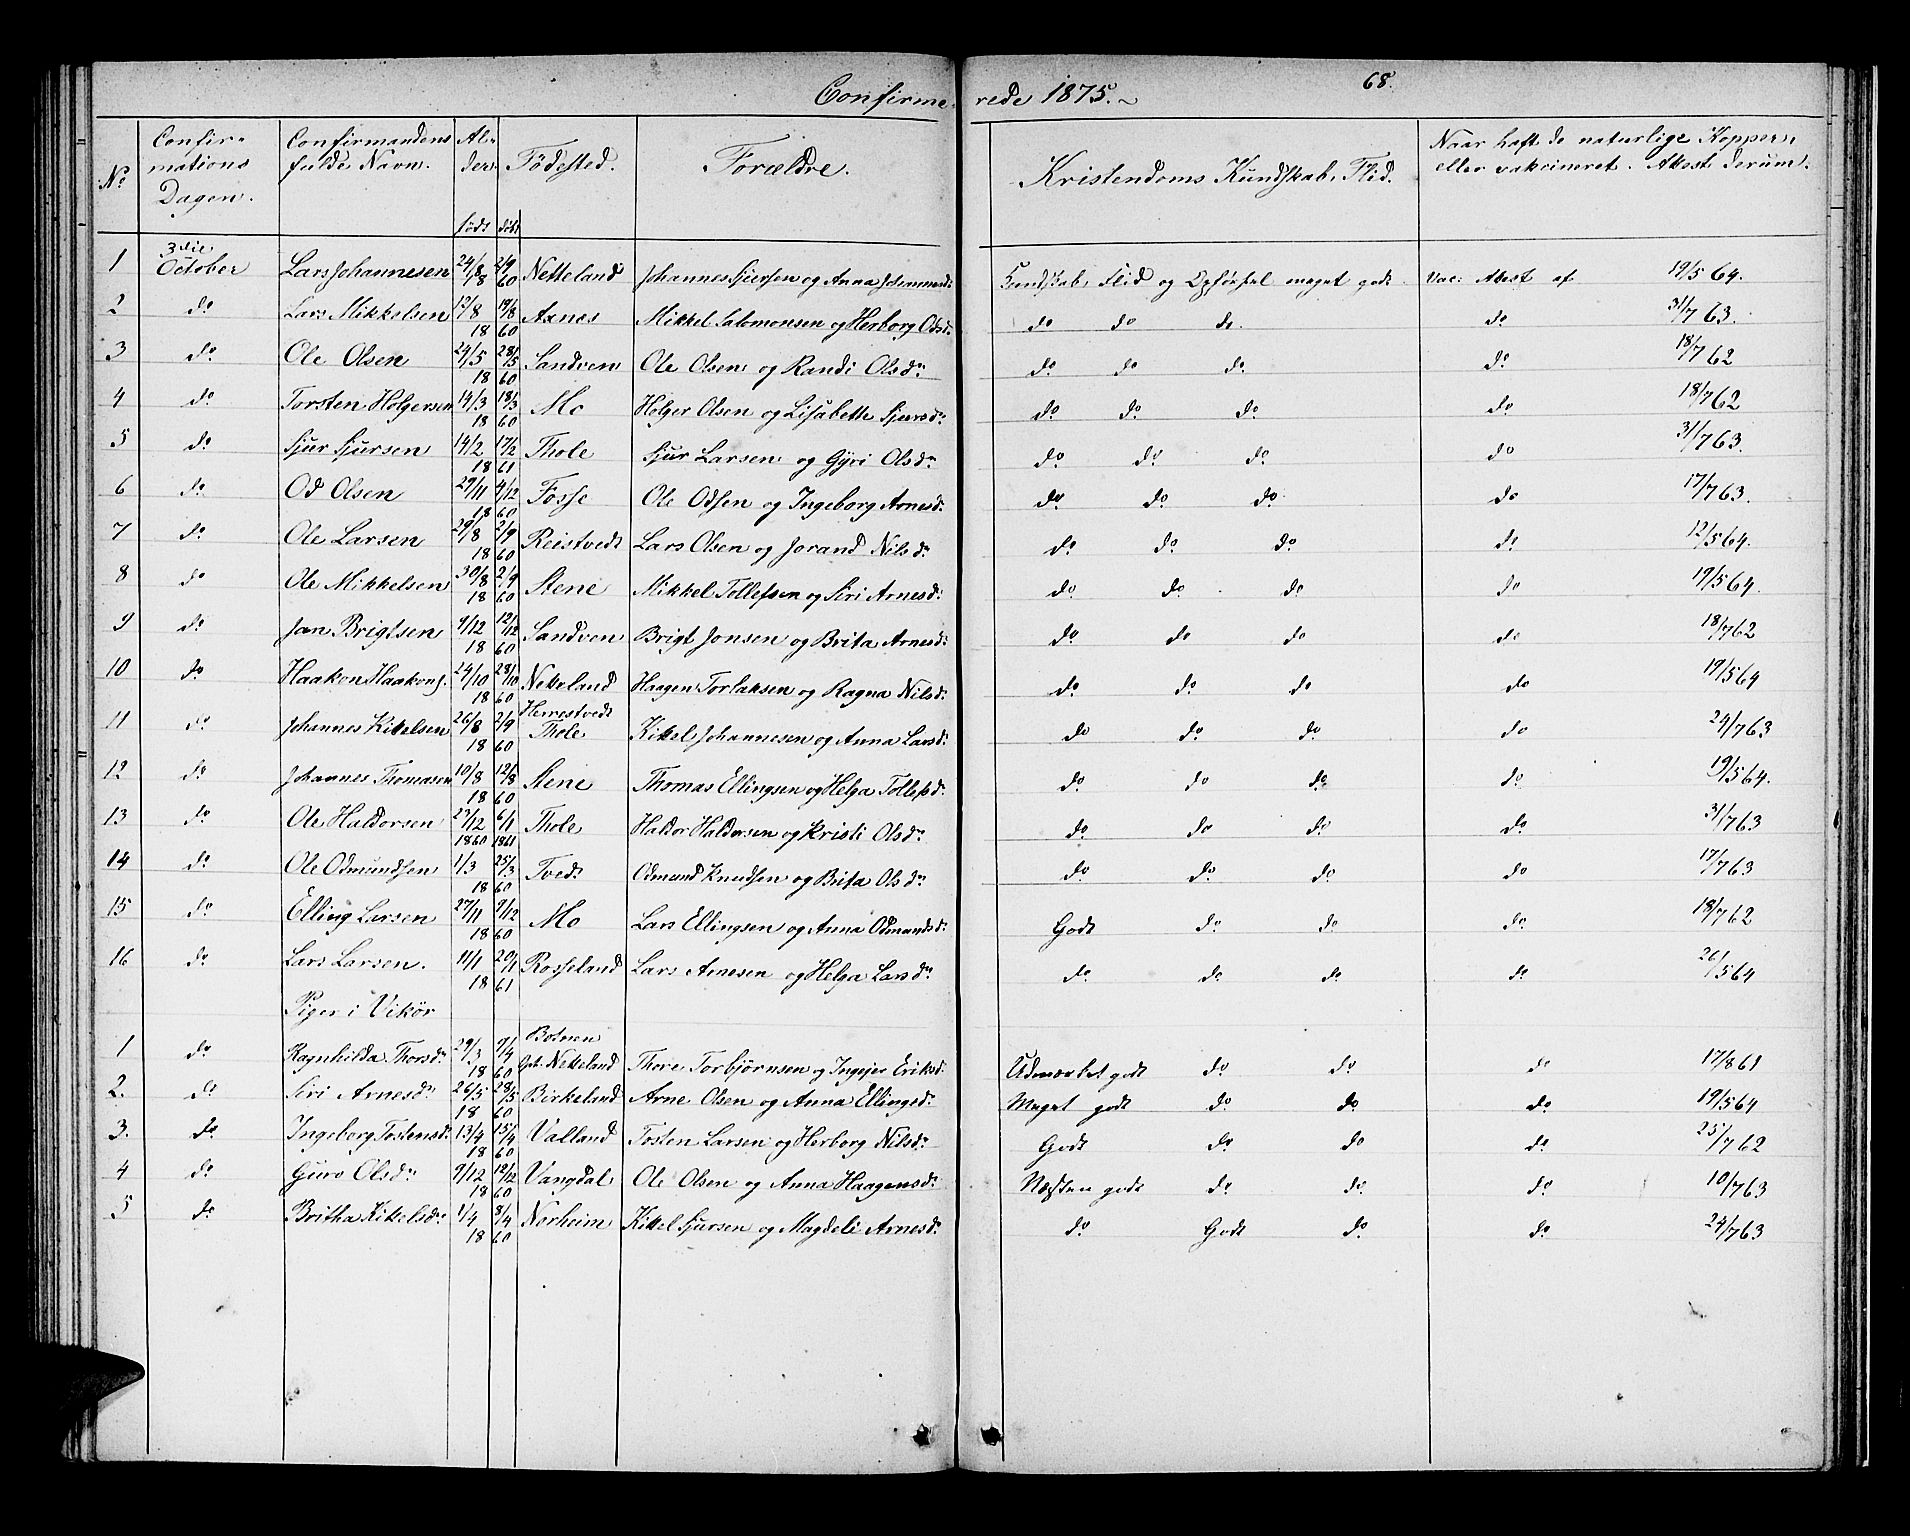 Confirmerede 1875.
68.
No Confirmations Dagen. Confirmandens fulde Navn. Alder. født døbt Födested. Forældre. Kristendoms Kundskab, Flid. Naar haft de naturlige Kopper, eller vakcineret. Attest derum.
1 3die October Lars Johannesen 24/8 1860 2/9 Netteland Johannes Sjursen og Anna Kundskab, Flid og Opførsel meget godt. Vac: Attest af 19/5 64.
2 do Lars Mikkelsen 12/8 1860 19/8 Axnes Mikkel Salomonsen og Herborg Odsdr do do do do 31/7 63.
3 do Ole Olsen 24/5 1860 28/5 Sandven Ole Olsen og Randi Olsdr do do do do 18/7 62
4 do Torsten Holgersen 14/3 1860 18/3 Mo Holger Olsen og Lisabette Sjursdr do do do do 18/7 62
5 do Sjur Sjursen 14/2 1861 17/2 Thole Sjur Larsen og Gÿri Olsdr do do do do 31/7 63.
6 do Od Olsen 29/11 1860 4/12 Fosse Ole Odsen og Ingeborg Arnesdr do do do do 17/7 63.
7 do Ole Larsen 29/8 1860 2/9 Reistvedt Lars Olsen og Jorand Nilsdr do do do do 12/5 64.
8 do Ole Mikkelsen 30/8 1860 2/9 Stene Mikkel Tollefsen og Siri Arnesdr do do do do 19/5 64.
9 do Jon Brigtsen 9/12 1860 12/12 Sandven Brigt Jonsen og Brita Arnesdr do do do do 18/7 62
10 do Haakon Haakons. 24/10 1860 28/10 Netteland Haagen Torlaksen og Ragna Nilsdr do do do do 19/5 64
11 do Johannes Kittelsen 26/8 1860 2/9 Herrestvedt Thole Kittel Johannesen og Anna Larsdr do do do do 24/7 63
12 do Johannes Thomasen 10/8 1860 12/8 Stene Thomas Ellingsen og Helga Tollefsdr do do do do 19/5 64.
13 do Ole Haldorsen 27/12 1860 6/1 1861 Thole Haldor Haldorsen og Kristi Olsdr do do do do 31/7 63
14 do Ole Odmundsen 1/3 1860 25/3 Tvedt Odmund Knudsen og Brita Olsdr do do do do 17/7 63
15 do Elling Larsen 27/11 1860 9/12 Mo Lars Ellingsen og Anna Odmundsdr Godt do do do 18/7 62
16 do Lars Larsen. 11/1 1861 20/1 Rosseland Lars Arnesen og Helga Larsdr do do do do 26/5 64
Piger i Vikör
1 do Ragnhilda Thorsdr 29/3 1860 9/4 Botnen Netteland Thore Torbjörnsen og Ingejer Eriksdr Udmærket godt do do do 17/8 61
2. do Siri Arnesdr 26/5 1860 28/5 Birkeland Arne Olsen og Anna Ellingsdr Meget godt do do do 19/5 64
3. do Ingeborg Tostensdr 13/4 1860 15/4 Valland Tosten Larsen og Herborg Nilsdr Godt do do do 25/7 62
4 do Guro Olsdr 9/12 1860 12/12 Vangdal Ole Olsen og Anna Haagensdr Næsten godt do do do 10/7 63
5 do Britha Kittelsdr 1/4 1860 8/4 Norheim Kittel Sjursen og Magdeli Arnesdr do Godt do do 24/7 63